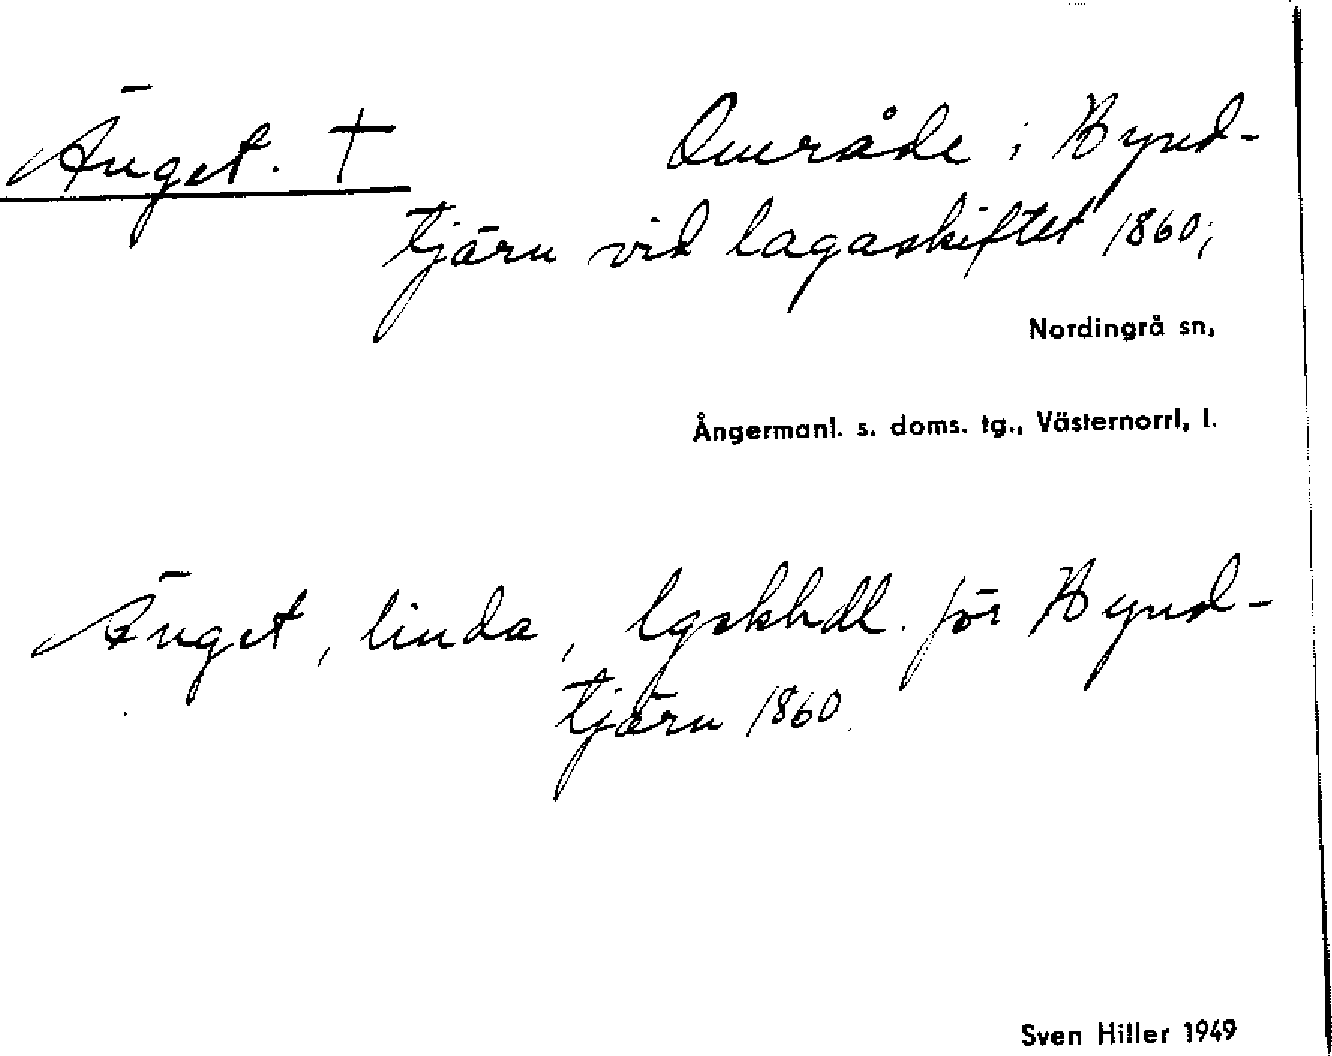 Änget. † Område i Hynd-
tjärn vid lagaskiftet 1860;
Nordingrå sn,
Ångermanl. s. doms. tg., Västernorrl, l.
Änget, linda, lgskhdl. för Hynd-
tjärn 1860.
Sven Hiller 1949